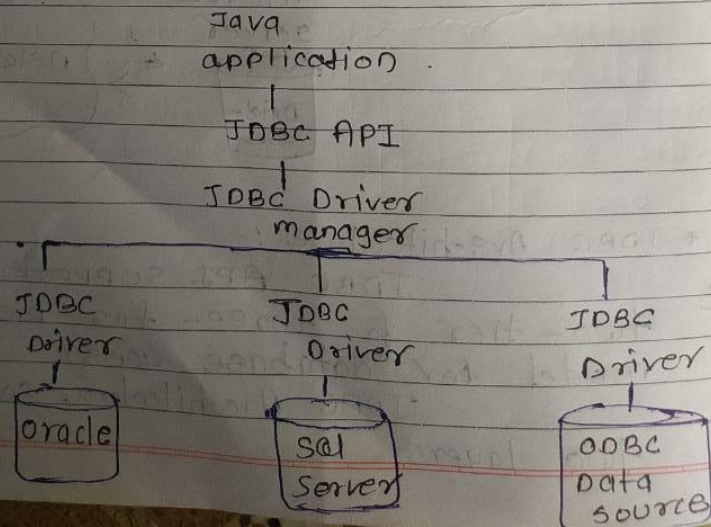 Java
application
JDBC API
JDBC Driver
manager
JDBC
Driver
JDBC
Driver
JDBC
Driver
Oracle
Sql
Server
ODBC
Data
source